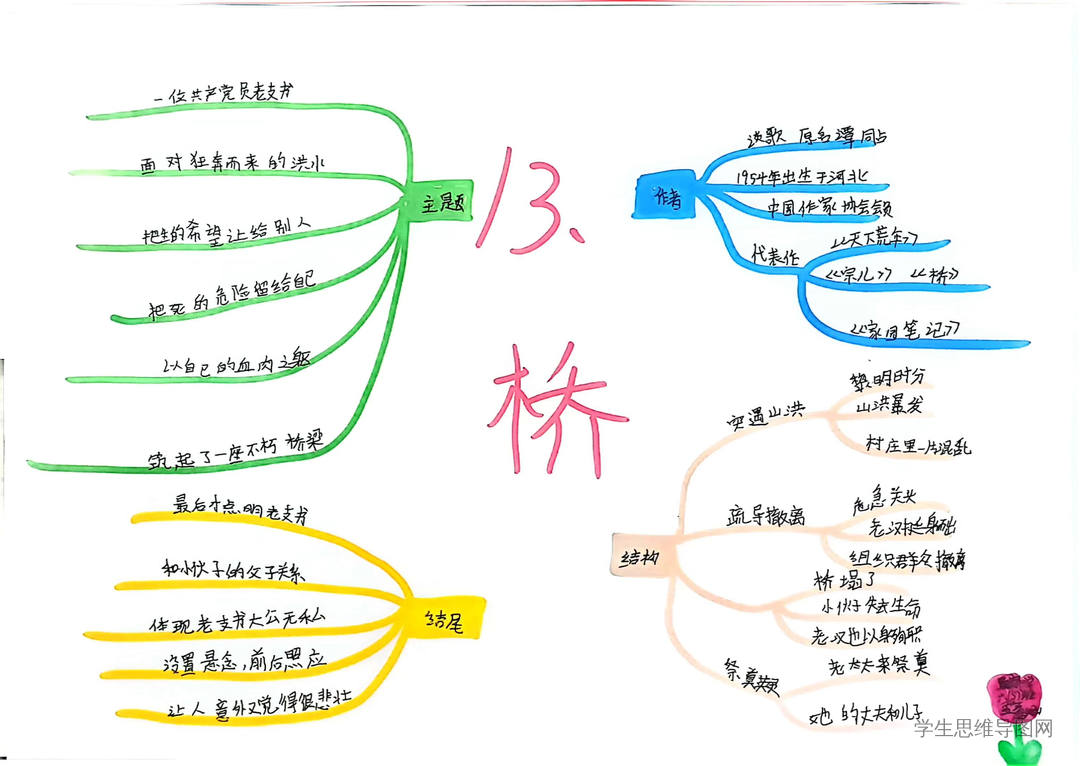 13、
桥
主题
一位共产党员老支书
面对狂奔而来的洪水
把生的希望让给别人
把死的危险留给自已
以自己的血肉之躯
筑起了一座不朽桥梁
作者
谈歌 原名谭同占
1954年出生于河北
中国作家协会会员
代表作
《天下荒年》
《宗儿》 《桥》
《家园笔记》
结构
突遇山洪
黎明时分
山洪暴发
村庄里一片混乱
疏导撤离
危急关头
老汉挺身而出
组织群众撤离
桥塌了
小伙子失去生命
老汉也以身殉职
祭奠英灵
老太太来祭奠
她的丈夫和儿子
结尾
最后才点明老支书
和小伙子的父子关系
体现老支书大公无私
设置悬念，前后照应
让人意外又觉得很悲壮
学生思维导图网